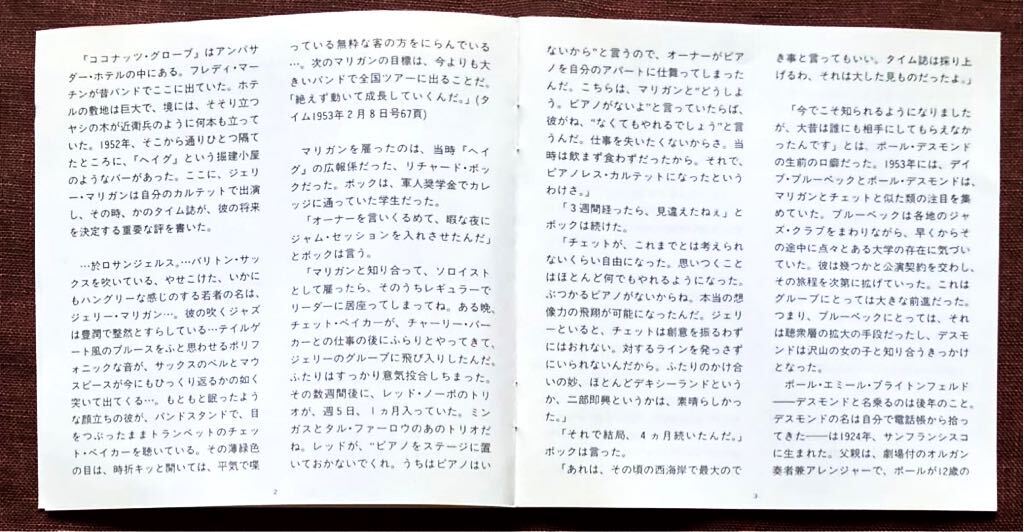 『ココナッツ・グローブ』はアンバサ
ダー・ホテルの中にある。フレディ・マー
チンが昔バンドでここに出ていた。ホテ
ルの敷地は巨大で、境には、そそり立つ
ヤシの木が近衛兵のように何本も立って
いた。1952年、そこから通りひとつ隔て
たところに、『ヘイグ』という掘建小屋
のようなバーがあった。ここに、ジェリ
ー・マリガンは自分のカルテットで出演
し、その時、かのタイム誌が、彼の将来
を決定する重要な評を書いた。
…於ロサンジェルス。…バリトン・サッ
クスを吹いている、やせこけた、いかに
もハングリーな感じのする若者の名は、
ジェリー・マリガン…。彼の吹くジャズ
は豊潤で整然とすらしている…テイルゲ
ート風のブルースをふと思わせるポリフ
ォニックな音が、サックスのベルとマウ
スピースが今にもひっくり返るかの如く
突いて出てくる…。もともと眠ったよう
な顔立ちの彼が、バンドスタンドで、目
をつぶったままトランペットのチェッ
ト・ベイカーを聴いている。その薄緑色
の目は、時折キッと開いては、平気で喋
っている無粋な客の方をにらんでいる
…。次のマリガンの目標は、今よりも大
きいバンドで全国ツアーに出ることだ。
「絶えず動いて成長していくんだ。」(タ
イム1953年2月8日号67頁)
マリガンを雇ったのは、当時『ヘイ
グ』の広報係だった、リチャード・ボッ
クだった。ボックは、軍人奨学金でカレ
ッジに通っていた学生だった。
「オーナーを言いくるめて、暇な夜に
ジャム・セッションを入れさせたんだ」
とボックは言う。
「マリガンと知り合って、ソロイスト
として雇ったら、そのうちレギュラーで
リーダーに居座ってしまってね。ある晩、
チェット・ベイカーが、チャーリー・パー
カーとの仕事の後にふらりとやってきて、
ジェリーのグループに飛び入りしたんだ。
ふたりはすっかり意気投合しちまった。
その数週間後に、レッド・ノーボのトリ
オが、週5日、1ヵ月入っていた。ミン
ガスとタル・ファーロウのあのトリオだ
ね。レッドが、“ピアノをステージに置
いておかないでくれ。うちはピアノはい
2
ないから”と言うので、オーナーがピア
ノを自分のアパートに仕舞ってしまった
んだ。こちらは、マリガンと“どうしよ
う。ピアノがないよ”と言っていたらば、
彼がね、“なくてもやれるでしょう”と言
うんだ。仕事を失いたくないからさ。当
時は飲まず食わずだったから。それで、
ピアノレス・カルテットになったという
わけさ。」
「3週間経ったら、見違えたねぇ」と
ボックは続けた。
「チェットが、これまでとは考えられ
ないくらい自由になった。思いつくこと
はほとんど何でもやれるようになった。
ぶつかるピアノがないからね。本当の想
像力の飛翔が可能になったんだ。ジェリ
ーといると、チェットは創意を振るわず
にはおれない。対するラインを発っさず
にいられないんだから。ふたりのかけ合
いの妙、ほとんどデキシーランドという
か、二部即興というかは、素晴らしかっ
た。」
「それで結局、4ヵ月続いたんだ。」
ボックは言った。
「あれは、その頃の西海岸で最大ので
き事と言ってもいい。タイム誌は採り上
げるわ、それは大した見ものだったよ。」
「今でこそ知られるようになりました
が、大昔は誰にも相手にしてもらえなか
ったんです」とは、ポール・デスモンド
の生前の口癖だった。1953年には、デイ
ブ・ブルーベックとポール・デスモンドは、
マリガンとチェットと似た類の注目を集
めていた。ブルーベックは各地のジャ
ズ・クラブをまわりながら、早くからそ
の途中に点々とある大学の存在に気づい
ていた。彼は幾つかと公演契約を交わし、
その旅程を次第に拡げていった。これは
グループにとっては大きな前進だった。
つまり、ブルーベックにとっては、それ
は聴衆層の拡大の手段だったし、デスモ
ンドは沢山の女の子と知り合うきっかけ
となった。
ポール・エミール・ブライトンフェルド
――デスモンドと名乗るのは後年のこと。
デスモンドの名は自分で電話帳から拾っ
てきた――は1924年、サンフランシスコ
に生まれた。父親は、劇場付のオルガン
奏者兼アレンジャーで、ポールが12歳の
3